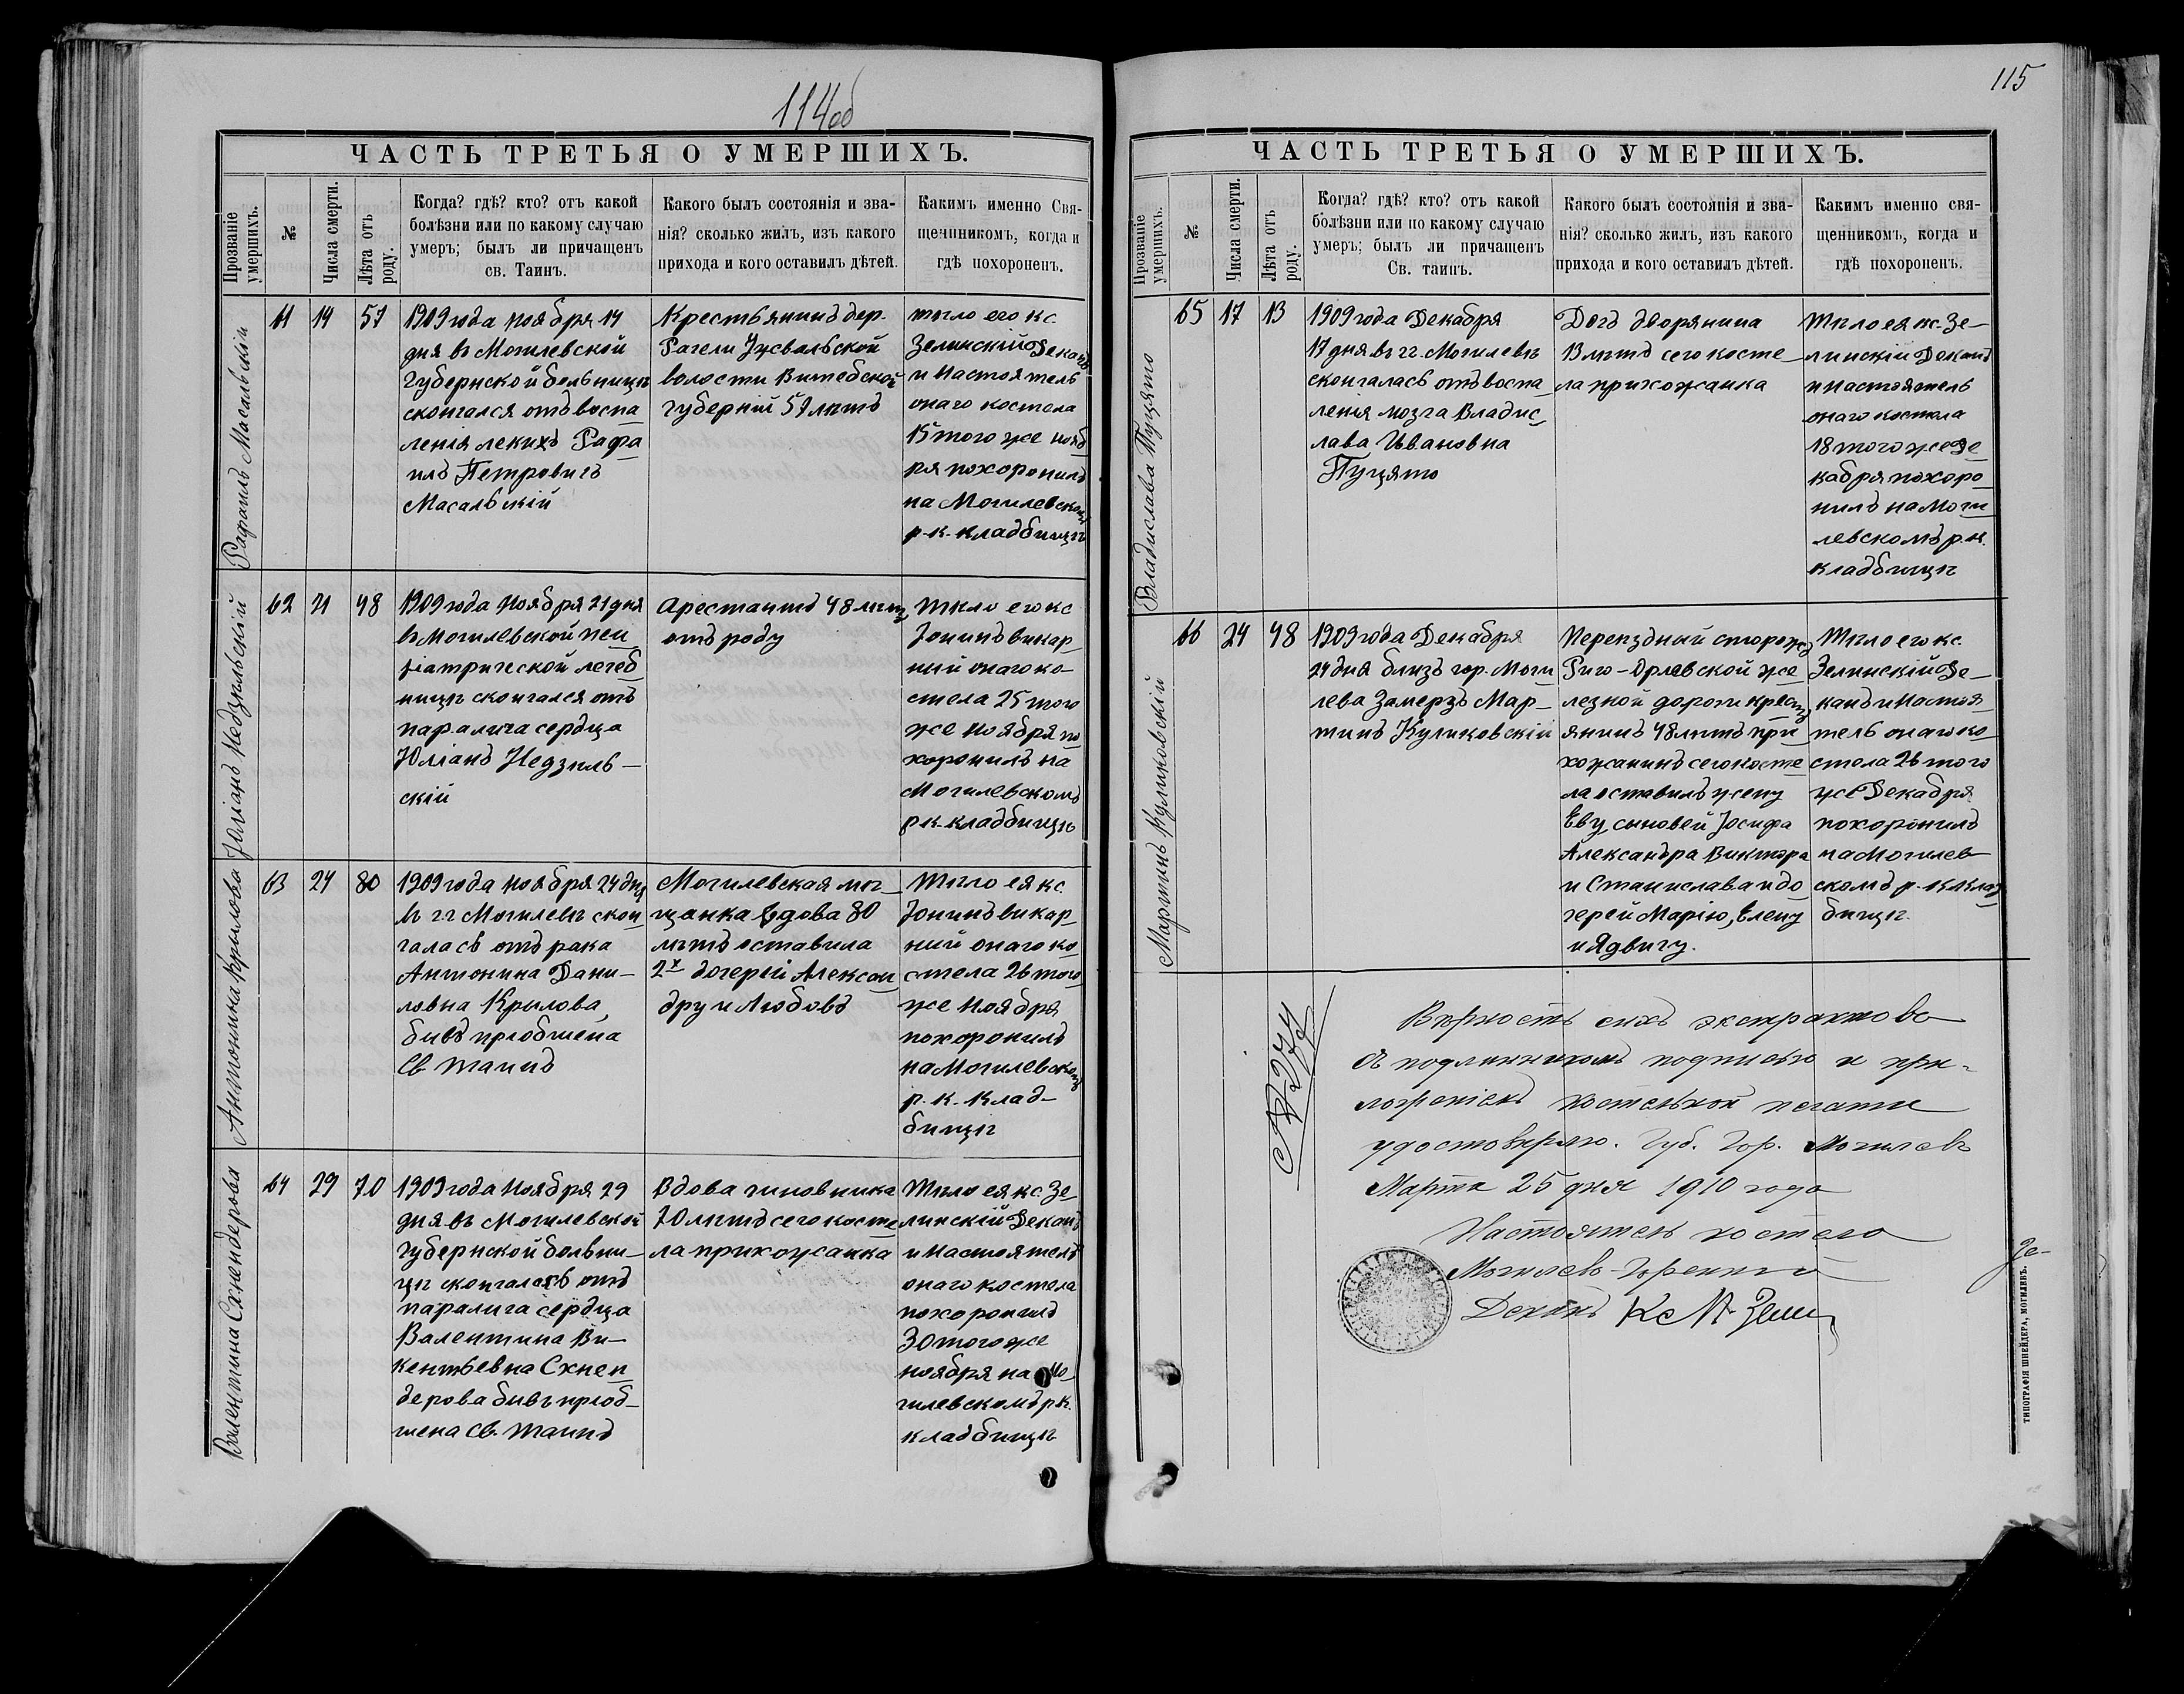 114об
ЧАСТЬ ТРЕТЬЯ О УМЕРШИХЪ.
Прозваніе умершихъ.
№
Числа смерти.
Лѣта отъ роду.
Когда? гдѣ? кто? отъ какой
болѣзни или по какому случаю
умеръ; былъ ли причащенъ
св. Таинъ.
Какого былъ состоянія и зва-
нія? сколько жилъ, изъ какого
прихода и кого оставилъ дѣтей.
Какимъ именно Свя-
щенникомъ, когда и
гдѣ похороненъ.
Рафаилъ Масальскій
61
14
57
1909 года ноября 14
дня въ Могилевской
Губернской больницѣ
скончался отъ воспа
ленія легкихъ Рафа
илъ Петровичъ
Масальскій
Крестьянинъ дер.
волости Витебской
губерніи 57 лѣтъ
тѣло его кс.
Зелинскій Деканъ
и Настоятель
онаго костела
15 того же нояб
ря похоронилъ
на Могилевскомъ
р.-к. кладбищѣ
Юліанъ Недзѣльскій
62
21
48
1909 года Ноября 21 дня
въ Могилевской пси
хіатрической лечеб
ницѣ скончался отъ
паралича сердца
Юліанъ Недзѣль-
скій
Арестантъ 48 лѣтъ
отъ роду
Тѣло его кс
Іонинъ викар
ный онаго ко-
стела 25 того
же Ноября по
хоронилъ на
Могилевскомъ
р.к. кладбищѣ
Антонина Крылова
63
24
80
1909 года ноября 24 дня
въ гг Могилевѣ скон
чалась отъ рака
Антонина Дани-
ловна Крылова
бывъ пріобщена
Св Таинъ
Могилевская мѣ
щанка вдова 80
лѣтъ оставила
2х дочерей Алексан
дру и Любовь
Тѣло ея кс.
Іонинъ викар
ный онаго ко
стела 26 того
же Ноября
похоронилъ
на Могилевскомъ
р.-к. клад-
бищѣ
Валентина Схнендерова
64
29
70
1909 года Ноября 29
дня въ Могилевской
Губернской больни-
цѣ скончалась отъ
паралича сердца
Валентина Ви-
кентьевна Схнен
дерова бывъ пріоб-
щена Св. Таинъ
Вдова чиновника
70 лѣтъ сего косте
ла прихожанка
Тѣло ея кс. Зе
линскій Деканъ
и Настоятель
онаго костела
похоронилъ
30 того же
ноября на Мо
гилевскомъ р.к.
кладбищѣ
115
ЧАСТЬ ТРЕТЬЯ О УМЕРШИХЪ.
Прозваніе умершихъ.
№
Числа смерти.
Лѣта отъ роду.
Когда? гдѣ? кто? отъ какой
болѣзни или по какому случаю
умеръ; былъ ли причащенъ
Св. таинъ.
Какого былъ состоянія и зва-
нія? сколько жилъ, изъ какого
прихода и кого оставилъ дѣтей.
Какимъ именно свя-
щенникомъ, когда и
гдѣ похороненъ.
Владислава Пуцято
65
17
13
1909 года Декабря
17 дня въ гг. Могилевѣ
скончалась отъ воспа
ленія мозга Владис
лава Ивановна
Пуцято
Дочь дворянина
13 лѣтъ сего косте
ла прихожанка
Тѣло ея кс. Зе-
линскій Деканъ
и Настоятель
онаго костела
18 того же Де
кабря похоро
нилъ на Моги
левскомъ р.к.
кладбищѣ
Мартинъ Куликовскій
66
24
48
1909 года Декабря
24 дня близъ гор. Моги
лева замерзъ Мар-
тинъ Куликовскій
Переѣздный сторожъ
Риго-Орлевской же
лезной дороги крест
янинъ 48 лѣтъ при
хожанинъ сего косте
ла оставилъ жену
Еву, сыновей Іосифа
Александра Виктора
и Станислава и до
черей Марію, Елену
и Ядвигу.
Тѣло его кс.
Зелинскій Де-
канъ и Настоя
тель онаго ко
стела 26 того
же Декабря
похоронилъ
на Могилев
скомъ р.-к. клад
бищѣ.
№ 274
Вѣрность сихъ экстрактовъ
съ подлинникомъ подписью и при-
ложеніемъ костельной печати
удостовѣряю. Губ. Гор. Могилевъ
Марта 25 дня 1910 года
Настоятель костела
Деканъ Кс
Зе-
ТИПОГРАФІЯ ШНЕЙДЕРА, МОГИЛЕВЪ.